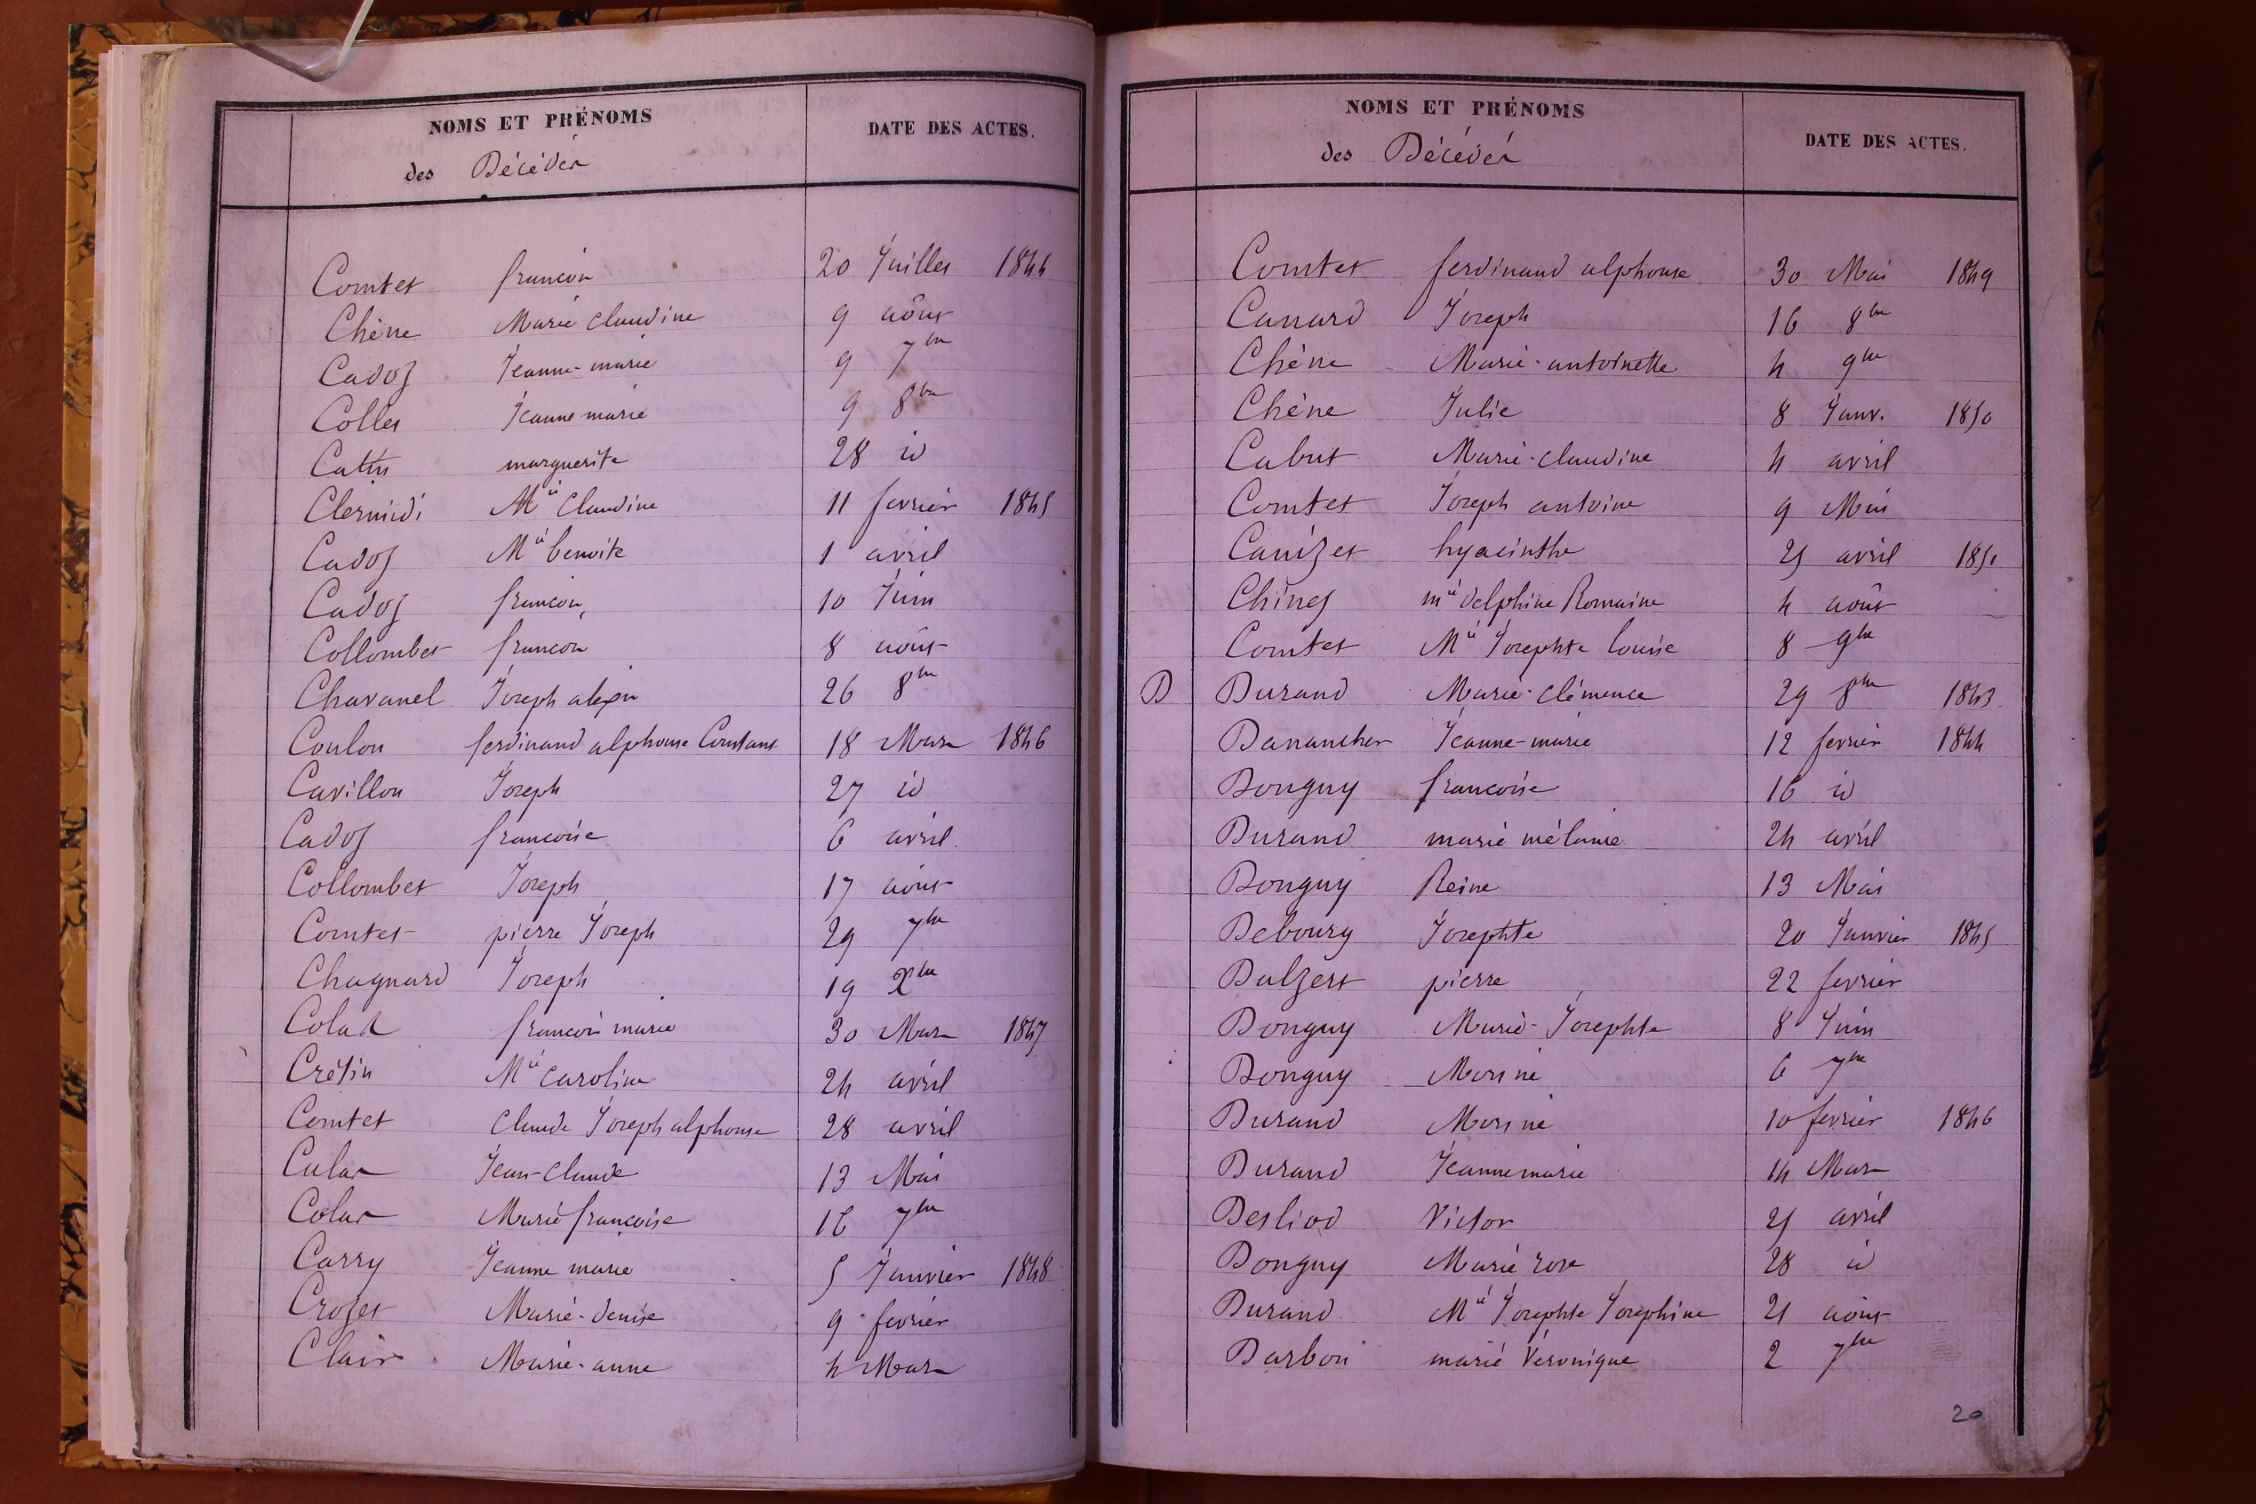 NOMS ET PRÉNOMS DATE DES ACTES.
des Décédés
Comtet françois 20 Juillet 1844
Chêne Marie claudine 9 août
Cadoz Jeanne-marie 9 7bre
Collet Jeanne marie 9 8bre
Catin marguerite 28 id
Clermidi Mie Claudine 11 fevrier 1845
Cadoz Mie benoite 1 avril
Cadoz françois 10 Juin
Collombet françois 8 août
Chavanel Joseph alexis 26 8bre
Coulon ferdinand alphonse Constant 18 Mars 1846
Cavillon Joseph 27 id
Cadoz francoise 6 avril
Collombet Joseph 17 août
Comtet pierre Joseph 29 7bre
Chagnard Joseph 19 Xbre
Colas françois marie 30 Mars 1847
Crétin Mie Caroline 24 avril
Comtet Claude Joseph alphonse 28 avril
Culas Jean-Claude 13 Mai
Colas Marie françoise 16 7bre
Carry Jeanne marie 5 Janvier 1848
Crozet Marie-denise 9 fevrier
Clair Marie-anne 4 Mars
NOMS ET PRÉNOMS DATE DES ACTES.
des Décédés
Comtet ferdinand alphonse 30 Mai 1849
Canard Joseph 16 8bre
Chêne Marie-antoinette 4 9bre
Chêne Julie 8 Janv. 1850
Cabut Marie-claudine 4 avril
Comtet Joseph antoine 9 Mai
Canizet hyacinthe 25 avril 1851
Chinez mie delphine Romaine 4 août
Comtet Mie Josephte louise 8 9bre
D Durand Marie-clémence 29 8bre 1843
Danancher Jeanne-marie 12 fevrier 1844
Donguy francoise 16 id
Durand marie mélanie 24 avril
Donguy Reine 13 Mai
Deboury Josephte 20 Janvier 1845
Dalzert pierre 22 fevrier
Donguy Marie-Josephte 8 Juin
Donguy Mort né 6 7bre
Durand Mort né 10 fevrier 1846
Durand Jeanne marie 14 Mars
Desliod Victor 25 avril
Donguy Marie rose 28 id
Durand Mie Josephte Josephine 21 août
Darbon marie Véronique 2 7bre
20